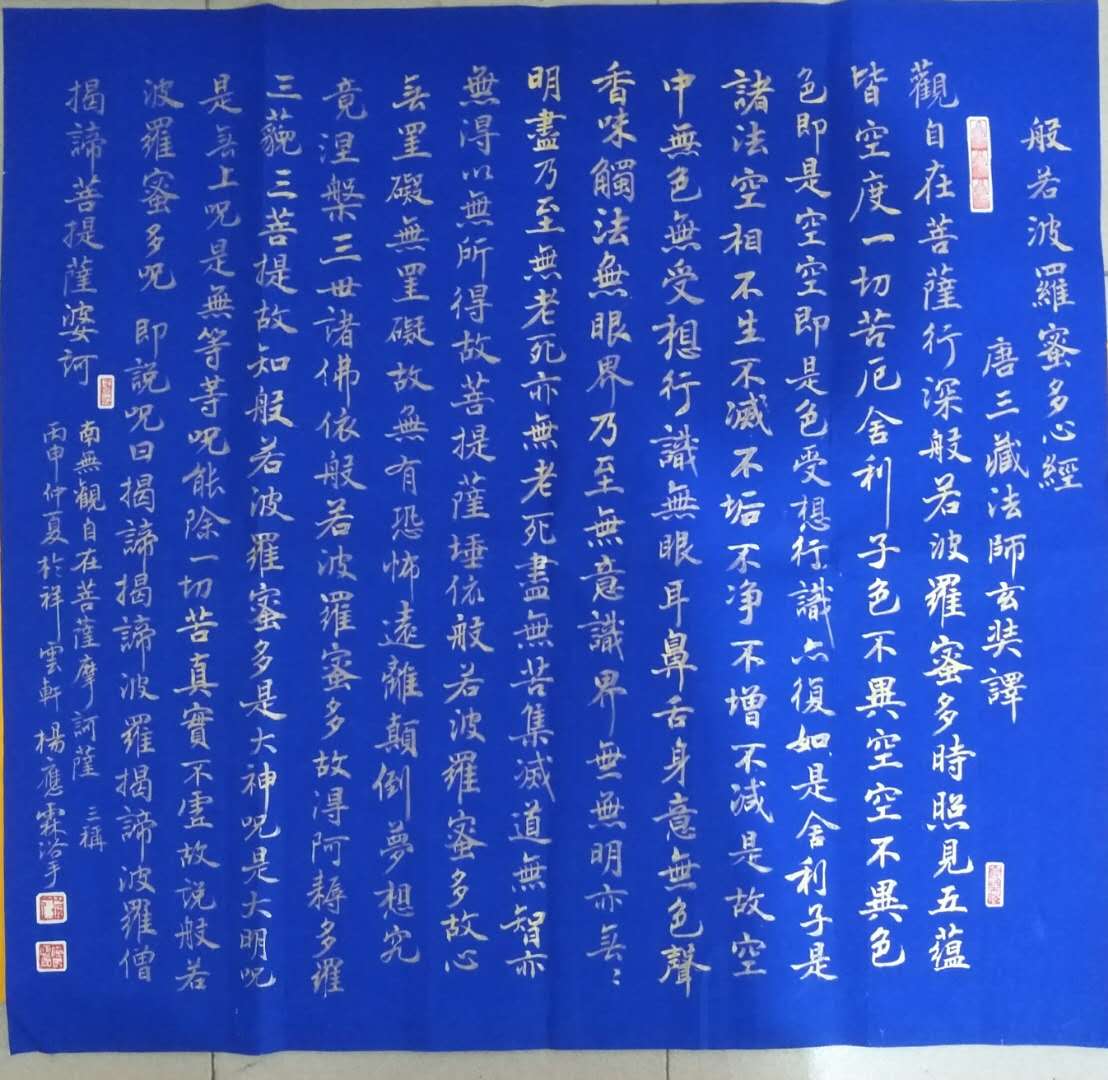 般若波羅蜜多心經
唐三藏法師玄奘譯
觀自在菩薩行深般若波羅蜜多時照見五蘊
皆空度一切苦厄舍利子色不異空空不異色
色即是空空即是色受想行識亦復如是舍利子是
諸法空相不生不滅不垢不净不增不減是故空
中無色無受想行識無眼耳鼻舌身意無色聲
香味觸法無眼界乃至無意識界無無明亦無〻
明盡乃至無老死亦無老死盡無苦集滅道無智亦
無得以無所得故菩提薩埵依般若波羅蜜多故心
無罣礙無罣礙故無有恐怖遠離顛倒夢想究
竟涅槃三世諸佛依般若波羅蜜多故得阿耨多羅
三藐三菩提故知般若波羅蜜多是大神呪是大明呪
是無上呪是無等等呪能除一切苦真實不虛故説般若
波羅蜜多呪 即説呪曰揭諦揭諦波羅揭諦波羅僧
揭諦菩提薩婆訶
南無觀自在菩薩摩訶薩 三稱
丙申仲夏於祥雲軒楊應霖浴手